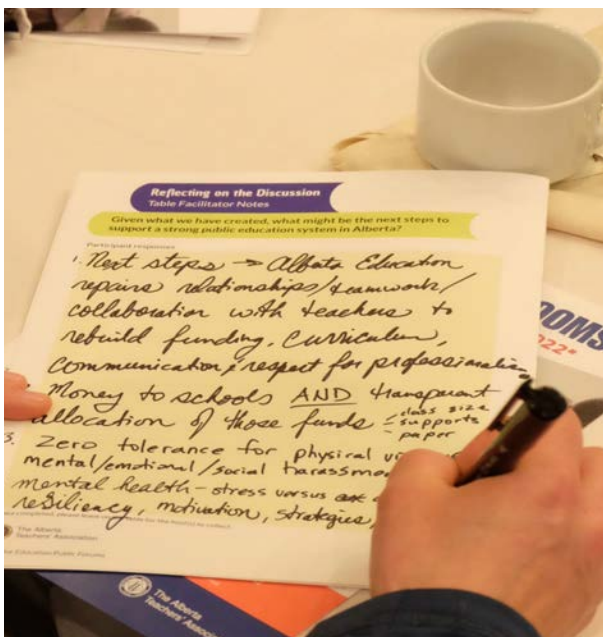 Reflecting on the Discussion
Table Facilitator Notes
Given what we have created, what might be the next steps to
support a strong public education system in Alberta?
Participant responses
1. Next steps → Alberta Education
repairs relationships/teamwork/
collaboration with teachers to
rebuild funding, curriculum,
communication & respect for professionalism
Money to schools AND transparent
allocation of those funds
- class size
- supports
- paper
3. Zero tolerance for physical
mental/emotional/social
mental health - stress versus
resiliency, motivation, strategies,
The Alberta
Teachers' Association
Education Public Forums
OOMS
2022*
The Alberta
Teachers'